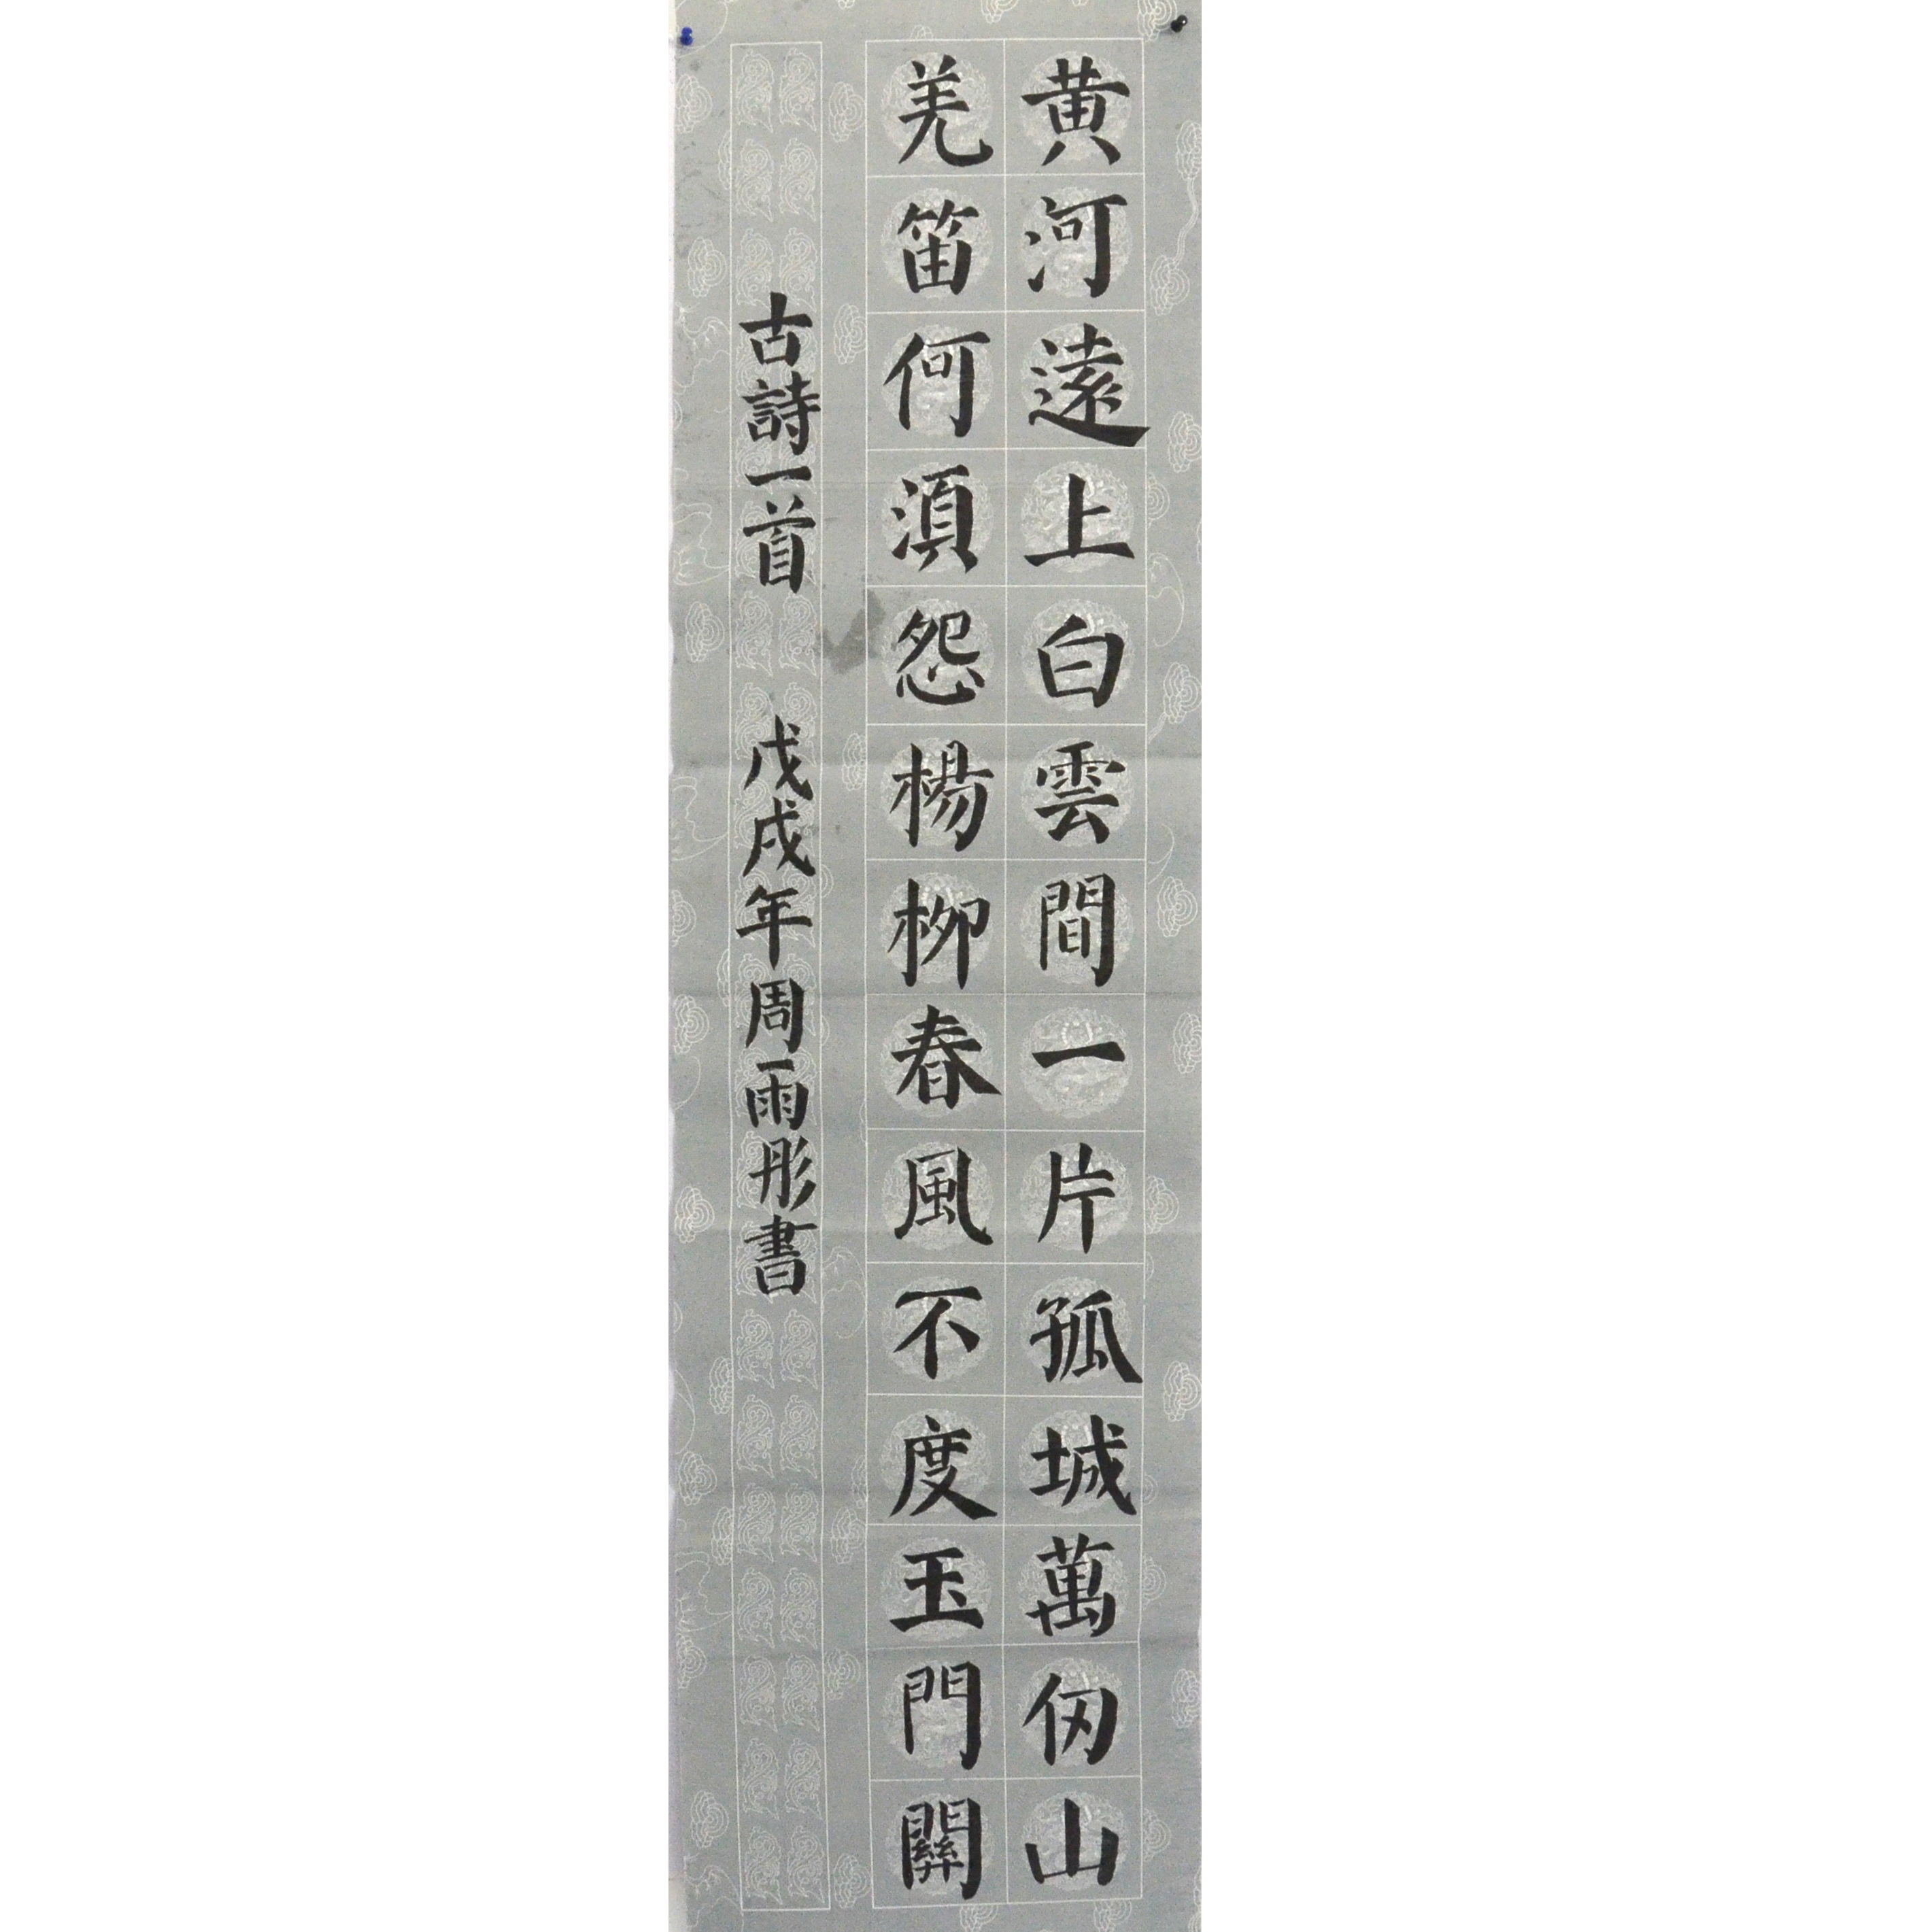 黄河遠上白雲間一片孤城萬仞山
羌笛何湏怨楊柳春風不度玉門關
古詩一首 戊戌年周雨彤書